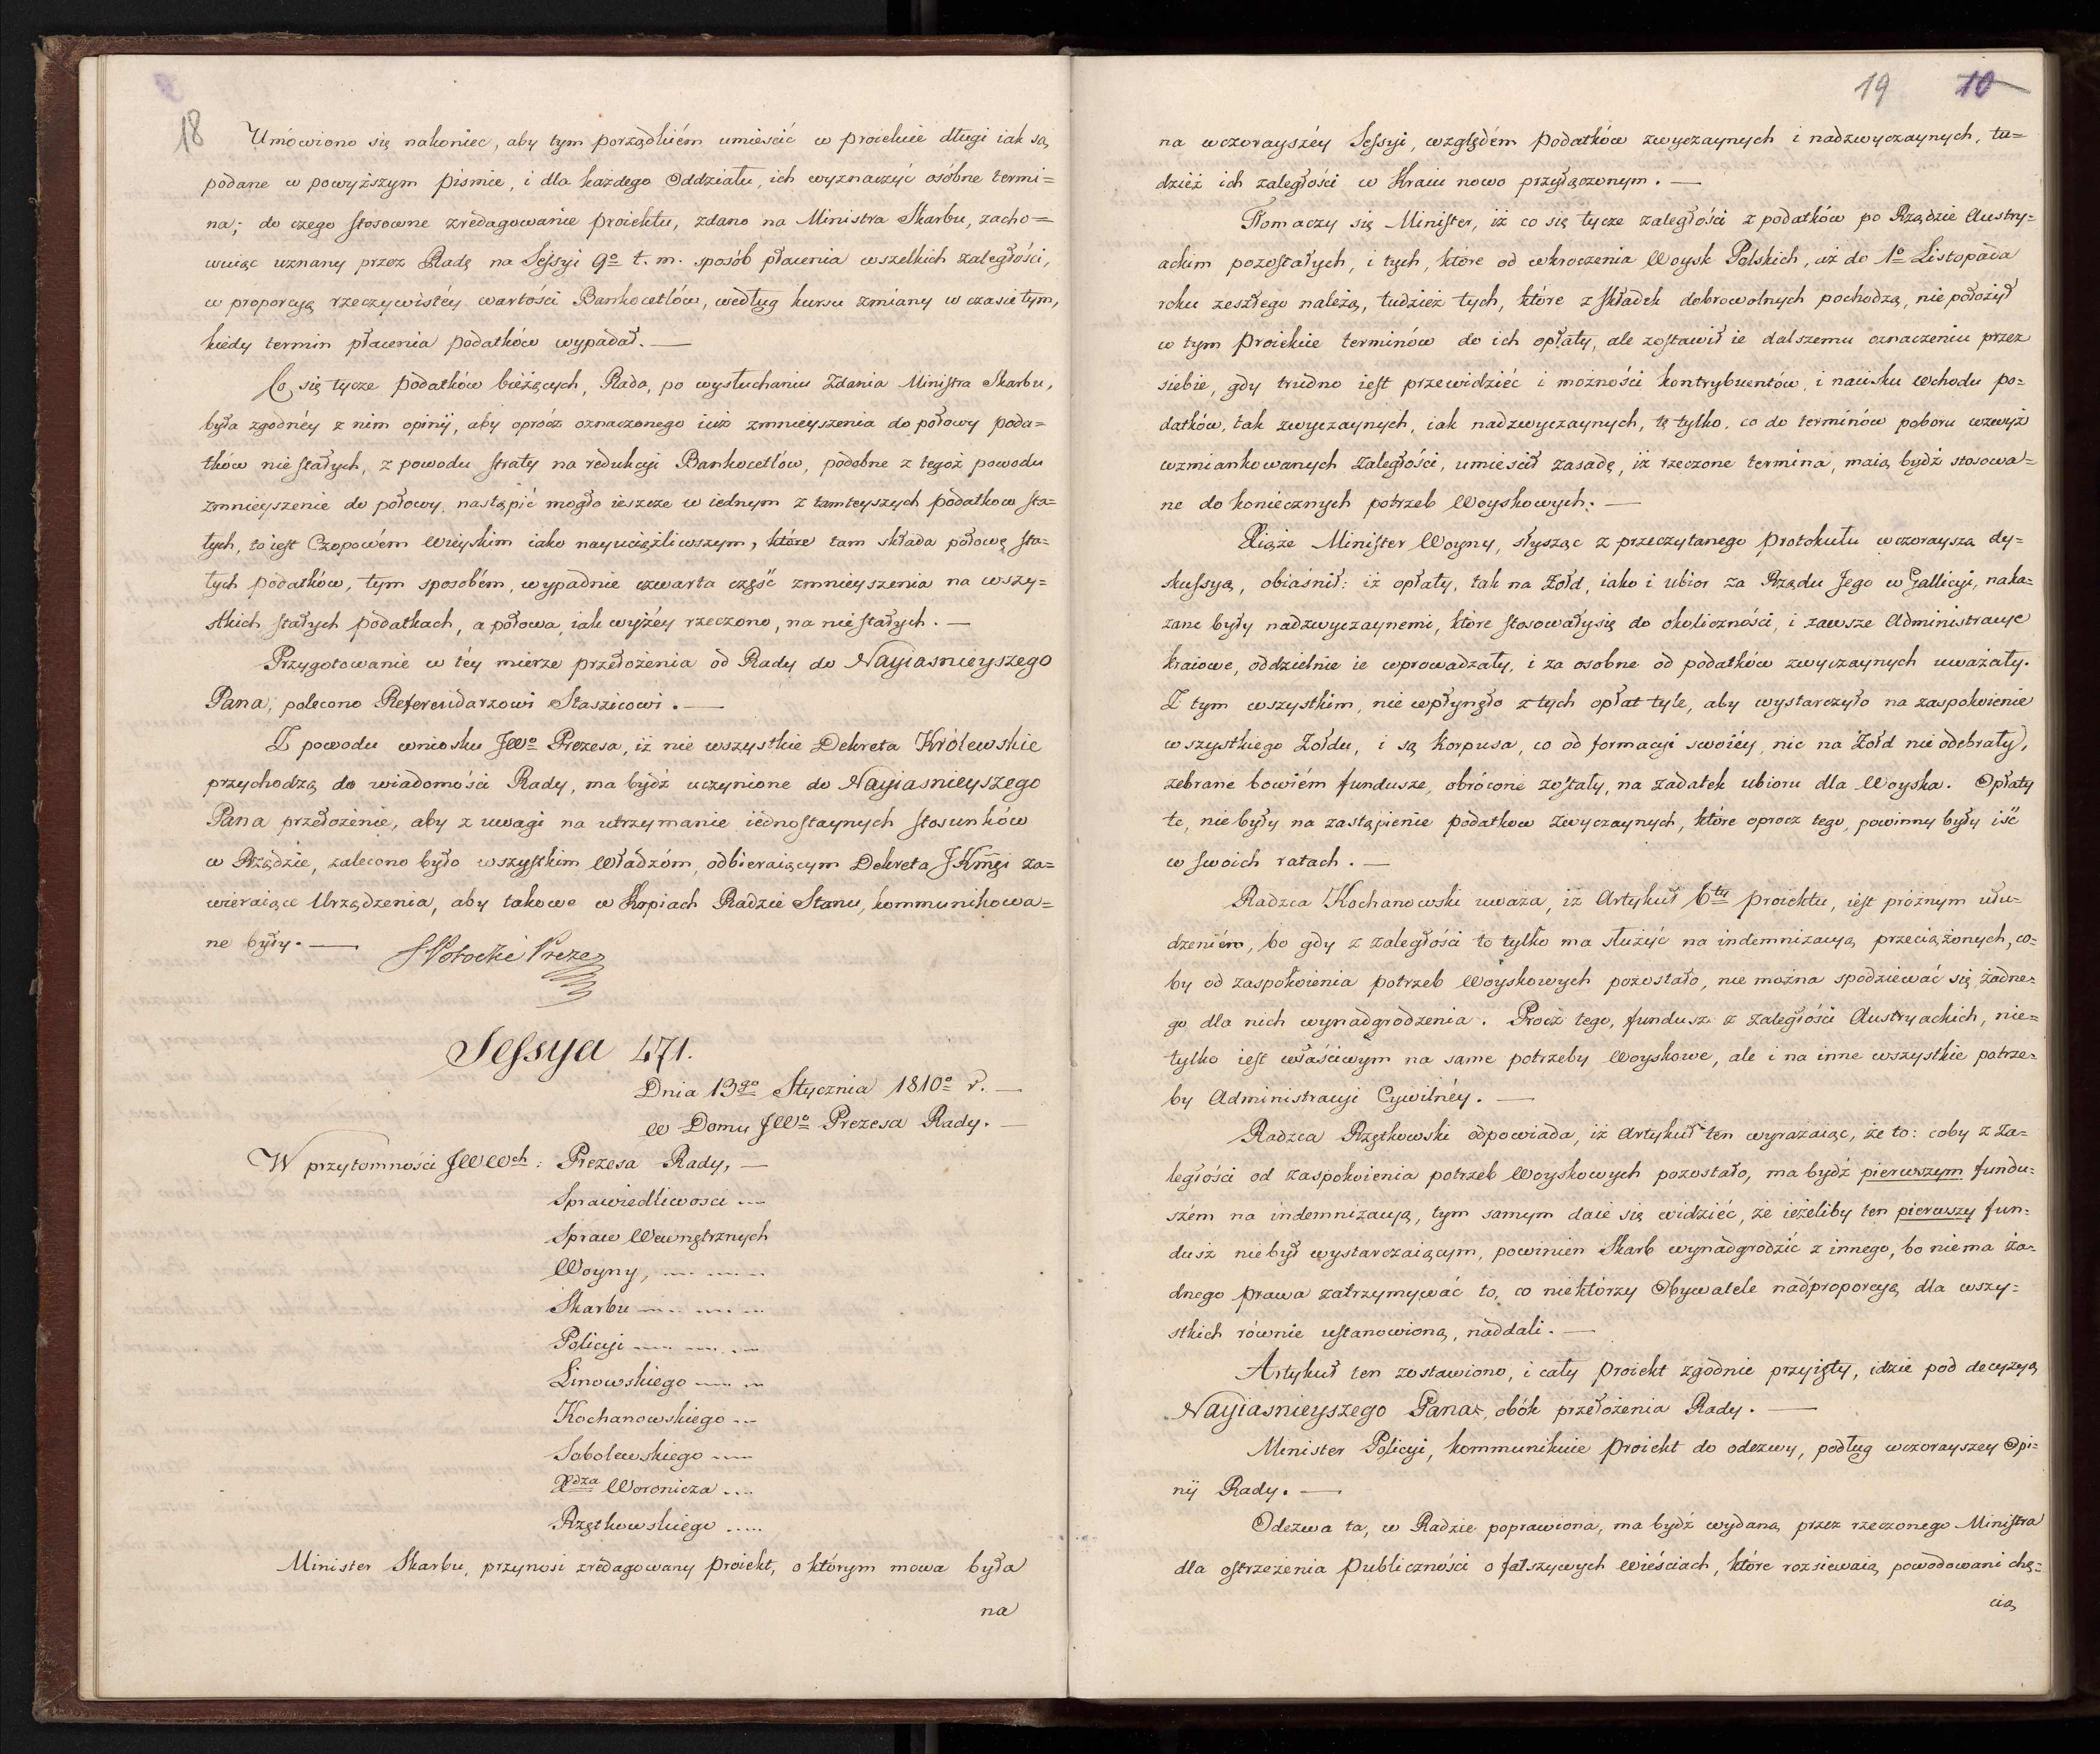 18
Umówiono się nakoniec, aby tym porządkiém umieścić w proiekcie długi iak są
podane w powyższym pismie, i dla każdego Oddziału, ich wyznaczyć osóbne termi=
na; do czego stosowne zredagowanie proiektu, zdano na Ministra Skarbu, zacho=
wuiąc uznany przez Radę na Sessyi 9º t. m. sposób płacenia wszelkich zaległości,
w proporcyą rzeczywistéy wartości Bankocetlów, według kursu zmiany w czasie tym,
kiedy termin płacenia podatków wypadał. —
Co się tycze podatków bieżących, Rada, po wysłuchaniu Zdania Ministra Skarbu,
była zgodnéy z nim opinij, aby oprócz oznaczonego iuż zmnieyszenia do połowy poda=
tków niestałych, z powodu straty na redukcyi Bankocetlów, podobne z tegoż powodu
zmnieyszenie do połowy, nastąpić mogło ieszcze w iednym z tamteyszych podatkow sta=
łych, to iest Czopowém Wieyskim iako nayuciążliwszym, które tam składa połowę sta=
łych podatków, tym sposobém, wypadnie czwarta część zmnieyszenia na wszy=
stkich stałych podatkach, a połowa, iak wyżéy rzeczono, na niestałych. —
Przygotowanie w téy mierze przełożenia od Rady do Nayiasnieyszego
Pana, polecono Referendarzowi Staszicowi. —
Z powodu wniosku JWº Prezesa, iż nie wszystkie Dekreta Królewskie
przychodzą do wiadomości Rady, ma bydź uczynione do Nayiasnieyszego
Pana przełożenie, aby z uwagi na utrzymanie iednostaynych stosunków
w Rządzie, zalecono było wszystkim Władzóm, odbieraiącym Dekreta JKmci za=
wieraiące Urządzenia, aby takowe w Kopiach Radzie Stanu, kommunikowa=
ne były. —
SPotocki Prezes
Sessya 471.
Dnia 13go Stycznia 1810º r. —
w Domu JWº Prezesa Rady. —
W przytomności JWWch: Prezesa Rady, —
Sprawiedliwosci ...
Spraw Wewnętrznych
Woyny, ... ... ...
Skarbu ... ... ...
Policyi ... ... ...
Linowskiego ... ...
Kochanowskiego ...
Sobolewskiego ...
Xdza Woronicza ...
Rzętkowskiego .....
Minister Skarbu, przynosi zredagowany proiekt, o którym mowa była
na
19 10
na wczorayszéy Sessyi, względém podatków zwyczaynych i nadzwyczaynych, tu=
dzież ich zaległości w Kraiu nowo przyłączonym. —
Tłomaczy się Minister, iż co się tycze zaległości z podatków po Rządzie Austry=
ackim pozostałych, i tych, które od wkroczenia Woysk Polskich, aż do 1º Listopada
roku zeszłego należą, tudzież tych, które z składek dobrowolnych pochodzą, nie położył
w tym proiekcie terminów do ich opłaty, ale zostawił ie dalszemu oznaczeniu przez
siebie, gdy trudno iest przewidzieć i możności kontrybuentów, i nacisku wchodu po=
datków, tak zwyczaynych, iak nadzwyczaynych, tę tylko, co do terminów poboru wzwyż
wzmiankowanych zaległości, umieścił zasadę, iż rzeczone termina, maią bydź stosowa=
ne do koniecznych potrzeb Woyskowych. —
Xiąże Minister Woyny, słysząc z przeczytanego protokułu wczorayszą dy=
skussyą, obiaśnił: iż opłaty, tak na Żołd, iako i ubior za Rządu Jego w Gallicyi, naka=
zane były nadzwyczaynemi, które stosowały się do okoliczności, i zawsze Administracye
kraiowe, oddzielnie ie wprowadzały, i za osobne od podatków zwyczaynych uważały.
Z tym wszystkim, nie wpłynęło z tych opłat tyle, aby wystarczyło na zaspokoienie
wszystkiego Żołdu, i są Korpusa, co od formacyi swoiéy, nic na Żołd nie odebrały,
zebrane bowiém fundusze, obrócone zostały, na zadatek ubioru dla Woyska. Opłaty
te, nie były na zastąpienie podatkow zwyczaynych, które oprocz tego, powinny były iść
w swoich ratach. —
Radzca Kochanowski uważa, iż Artykuł 6ty proiektu, iest próżnym ułu=
dzeniém, bo gdy z zaległości to tylko ma służyć na indemnizacyą przeciążonych, co=
by od zaspokoienia potrzeb Woyskowych pozostało, nie można spodziewać się żadne=
go dla nich wynadgrodzenia. Procz tego, fundusz z zaległości Austryackich, nie=
tylko iest właściwym na same potrzeby Woyskowe, ale i na inne wszystkie potrze=
by Administracyi Cywilnéy. —
Radzca Rzętkowski odpowiada, iż Artykuł ten wyrażaiąc, że to: coby z Za=
ległości od zaspokoienia potrzeb Woyskowych pozostało, ma bydź pierwszym fundu=
szém na indemnizacyą, tym samym daie się widzieć, że ieżeliby ten pierwszy fun=
dusz niebył wystarczaiącym, powinien Skarb wynadgrodzić z innego, bo niema ża=
dnego prawa zatrzymywać to, co niektórzy Obywatele nadproporcyą dla wszy=
stkich równie ustanowioną, naddali. —
Artykuł ten zostawiono, i cały proiekt zgodnie przyięty, idzie pod decyzyą
Nayiasnieyszego Pana, obók przełożenia Rady. —
Minister Policyi, kommunikuie proiekt do odezwy, podług wczorayszey Opi=
nij Rady. —
Odezwa ta, w Radzie poprawiona, ma bydź wydaną przez rzeczonego Ministra
dla ostrzeżenia Publiczności o fałszywych wieściach, które rozsiewaią, powodowani chę=
cią